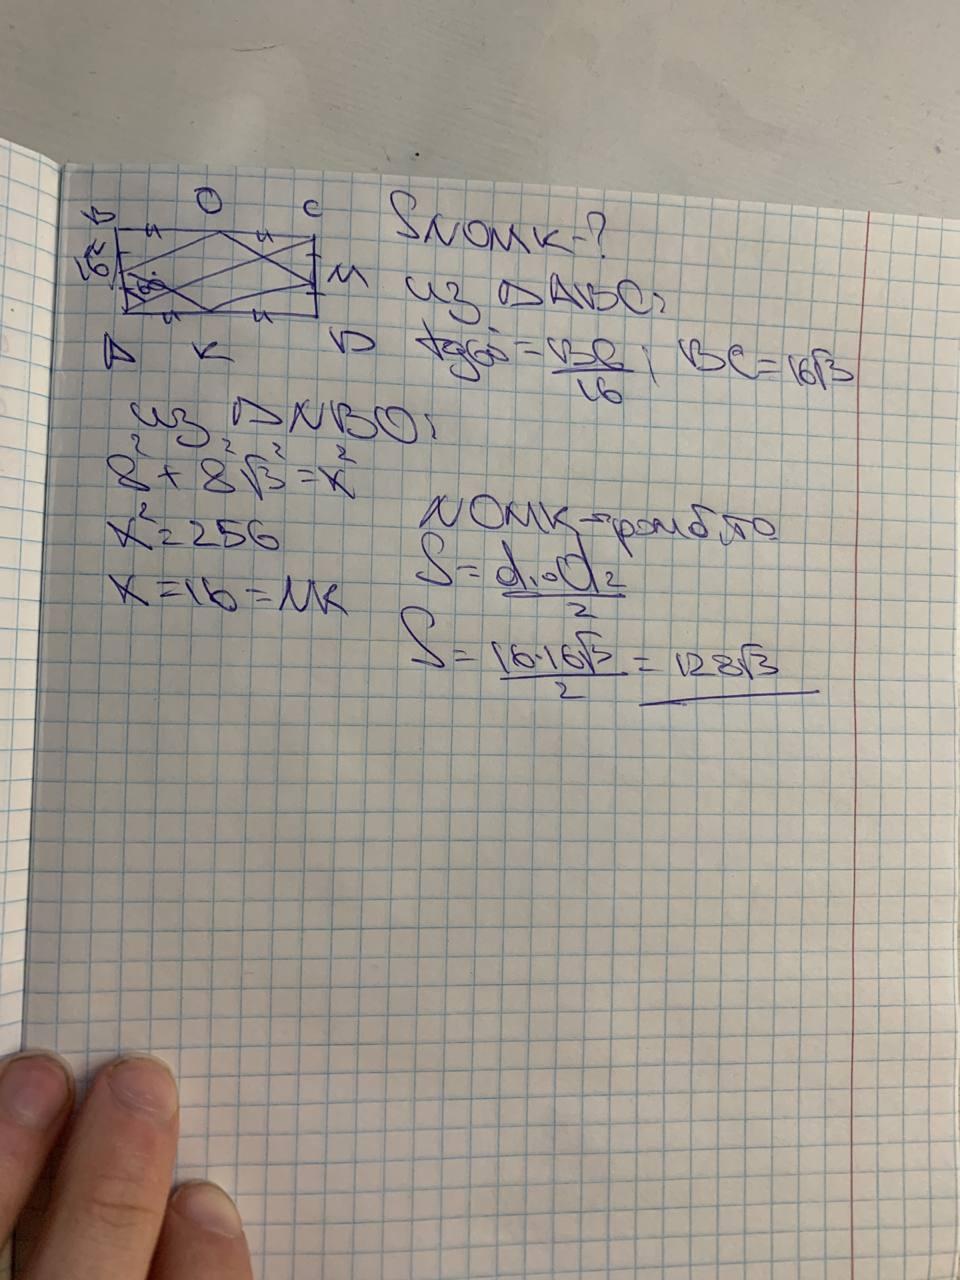 B O C
16 N
60°
M
A K D
SNOMK-?
из △ABC:
tg60° = BC/16; BC=16√3
из △NBO:
8² + 8²√3² = x²
x² = 256
x = 16 = NK
NOMK - ромб, то
S = d₁·d₂/2
S = 16·16√3/2 = 128√3